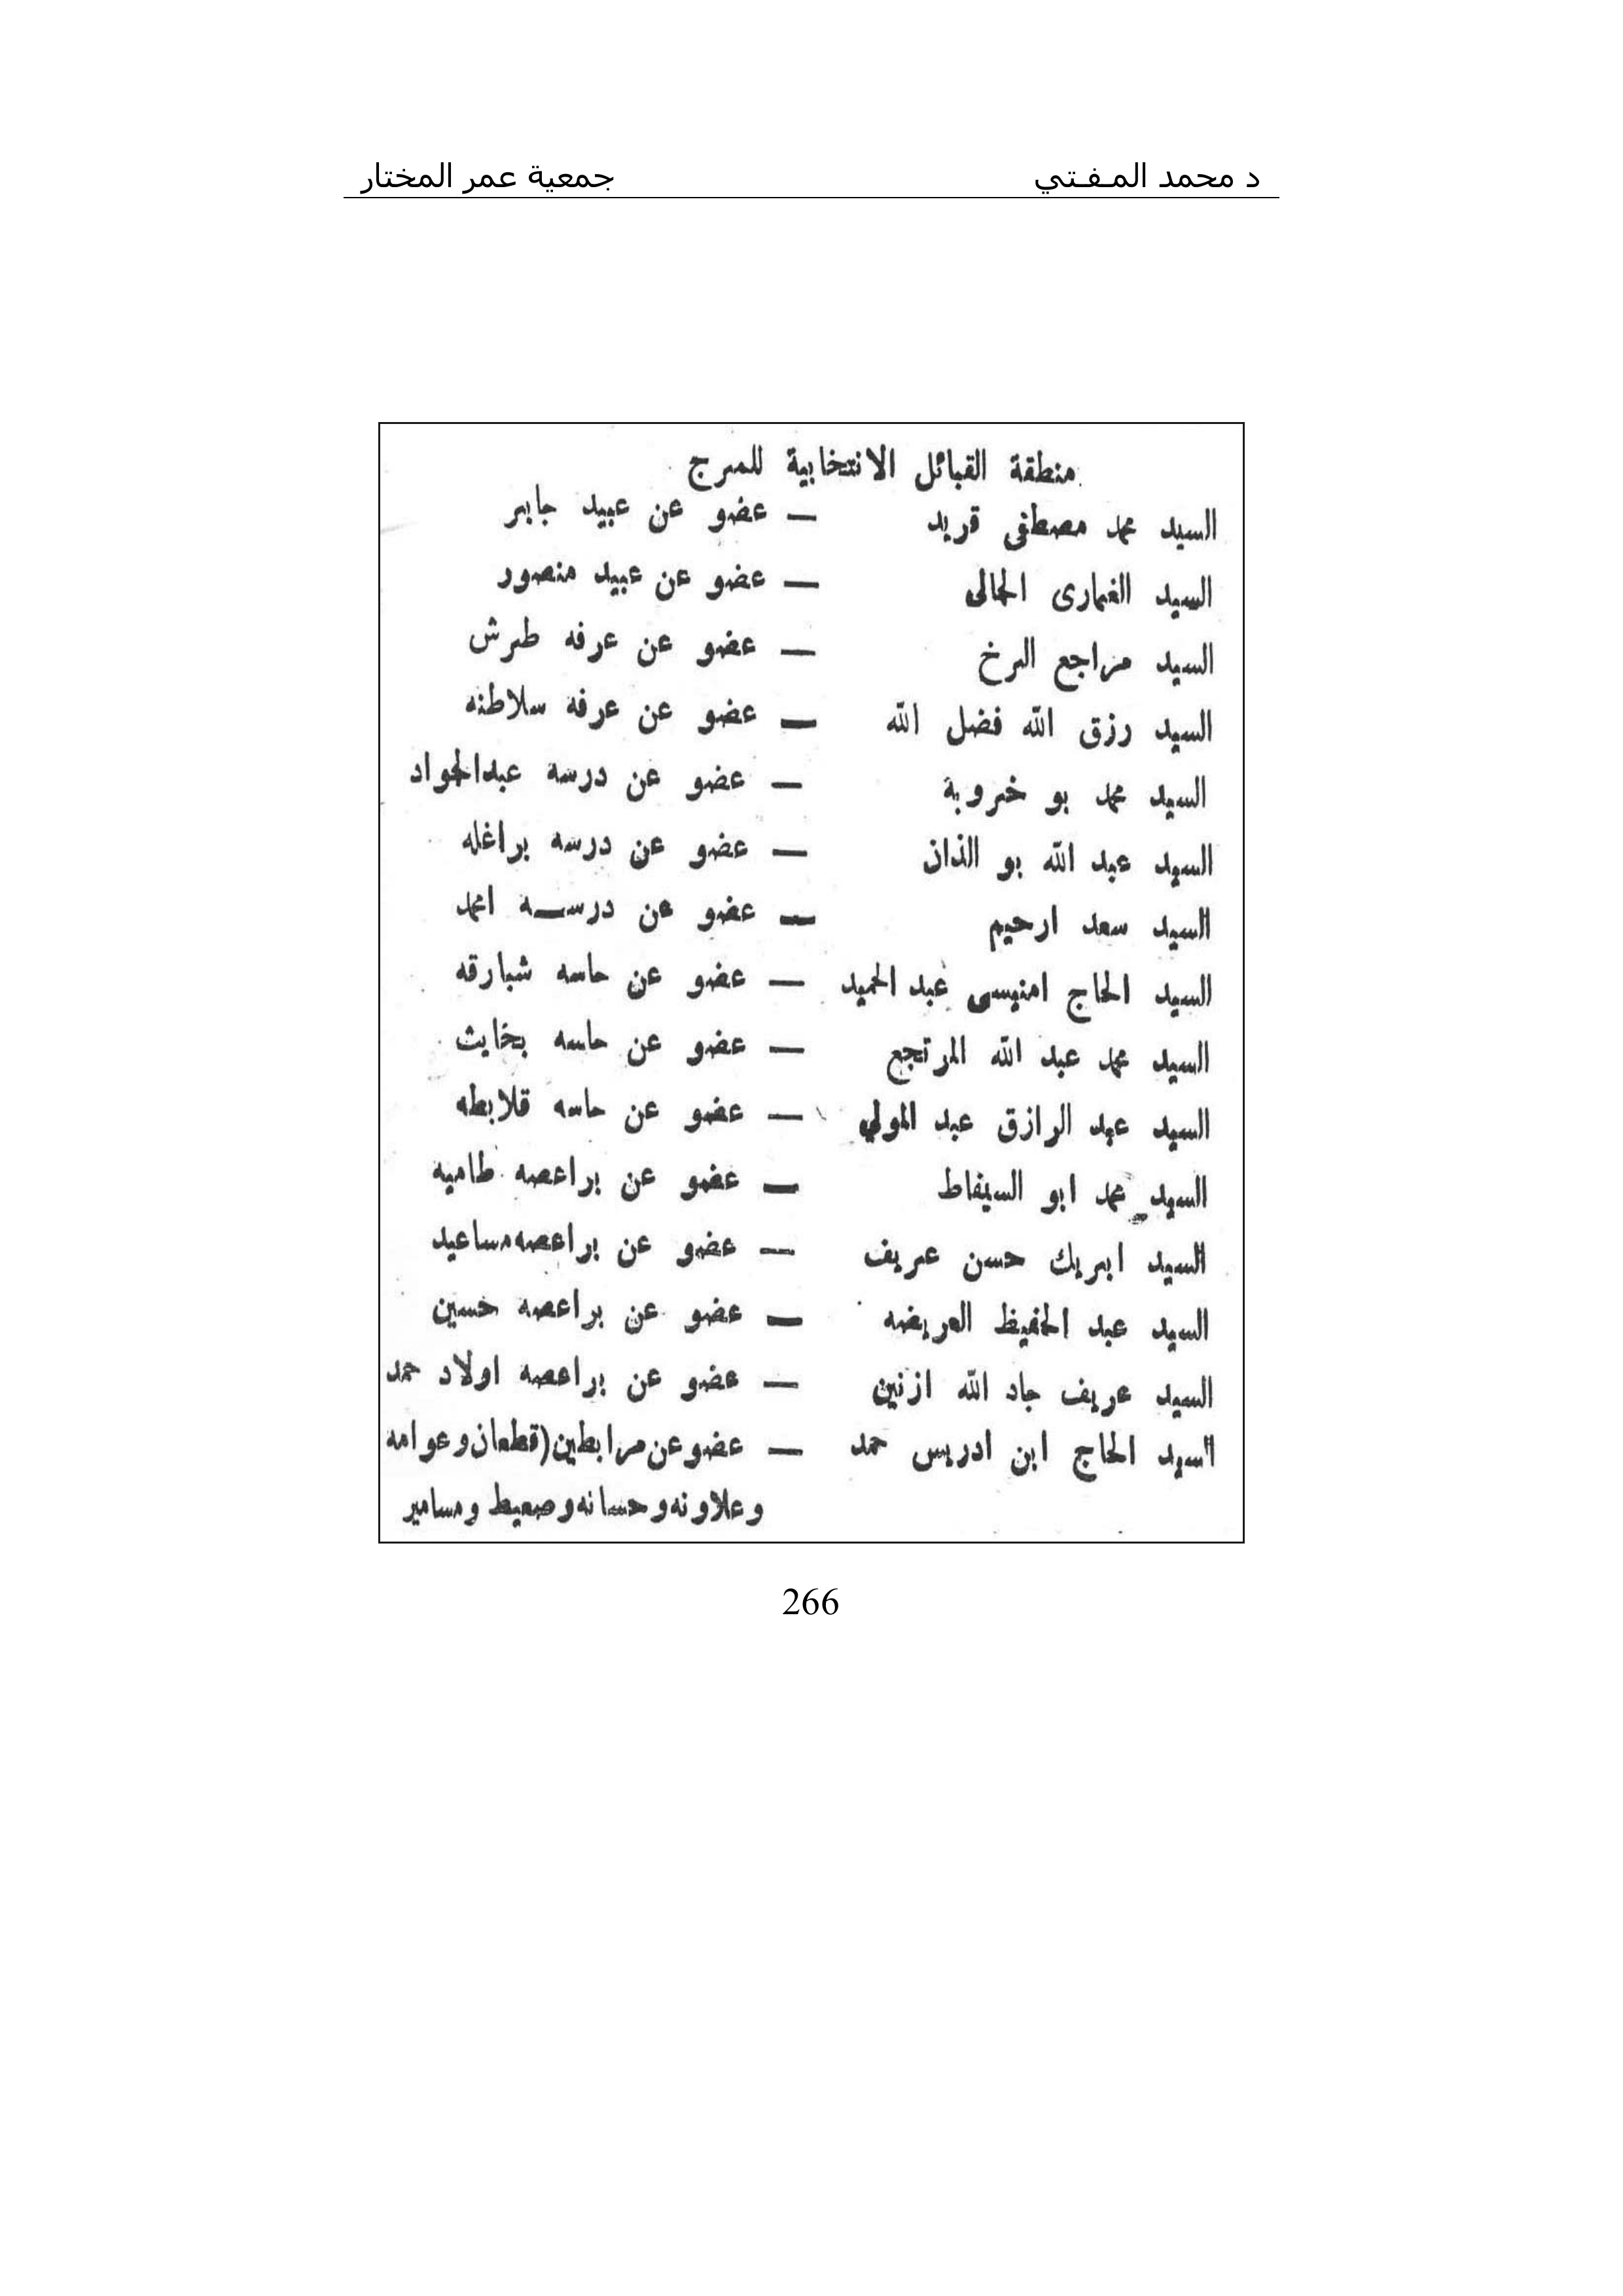 د محمد المـفـتي جمعية عمر المختار
منطقة القبائل الانتخابية للمرج
السيد محمد مصطفى قريد — عضو عن عبيد جابر
السيد الغمارى الجالى — عضو عن عبيد منصور
السيد مراجع الرخ — عضو عن عرفه طرش
السيد رزق الله فضل الله — عضو عن عرفه سلاطنه
السيد محمد بو خروبة — عضو عن درسه عبدالجواد
السيد عبد الله بو الذان — عضو عن درسه براغله
السيد سعد ارحيم — عضو عن درســه امحمد
السيد الحاج امنيسى عبد الحميد — عضو عن حاسه شبارقه
السيد محمد عبد الله المرتجع — عضو عن حاسه بخايث
السيد عبد الرازق عبد المولي — عضو عن حاسه قلابطه
السيد محمد ابو السيفاط — عضو عن براعصه طاميه
السيد ابريك حسن عريف — عضو عن براعصه مساعيد
السيد عبد الحفيظ العريضه — عضو عن براعصه حسين
السيد عريف جاد الله ازنين — عضو عن براعصه اولاد حمد
السيد الحاج ابن ادريس حمد — عضو عن مرابطين (قطعان وعوامه
وعلاونه وحسانه وصعيط ومسامير
266